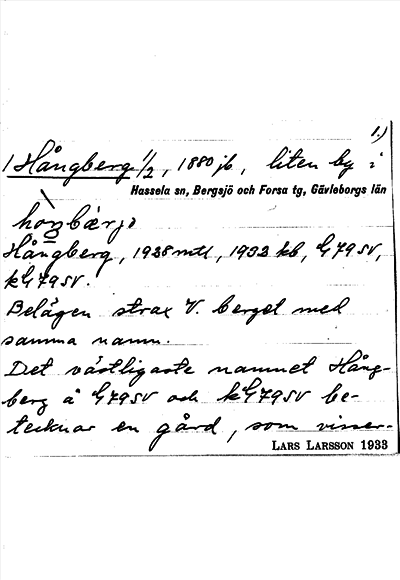 1.)
1 Hångberg 1/2, 1880 jb, liten by i
Hassela sn, Bergsjö och Forsa tg, Gävleborgs län
Hångberg, 1938 mtl, 1932 kb, G79SV,
kG79SV.
Belägen strax V. berget med
samma namn.
Det västligaste namnet Hång-
berg å G79SV och kG79SV be-
tecknar en gård, som visser-
LARS LARSSON 1933